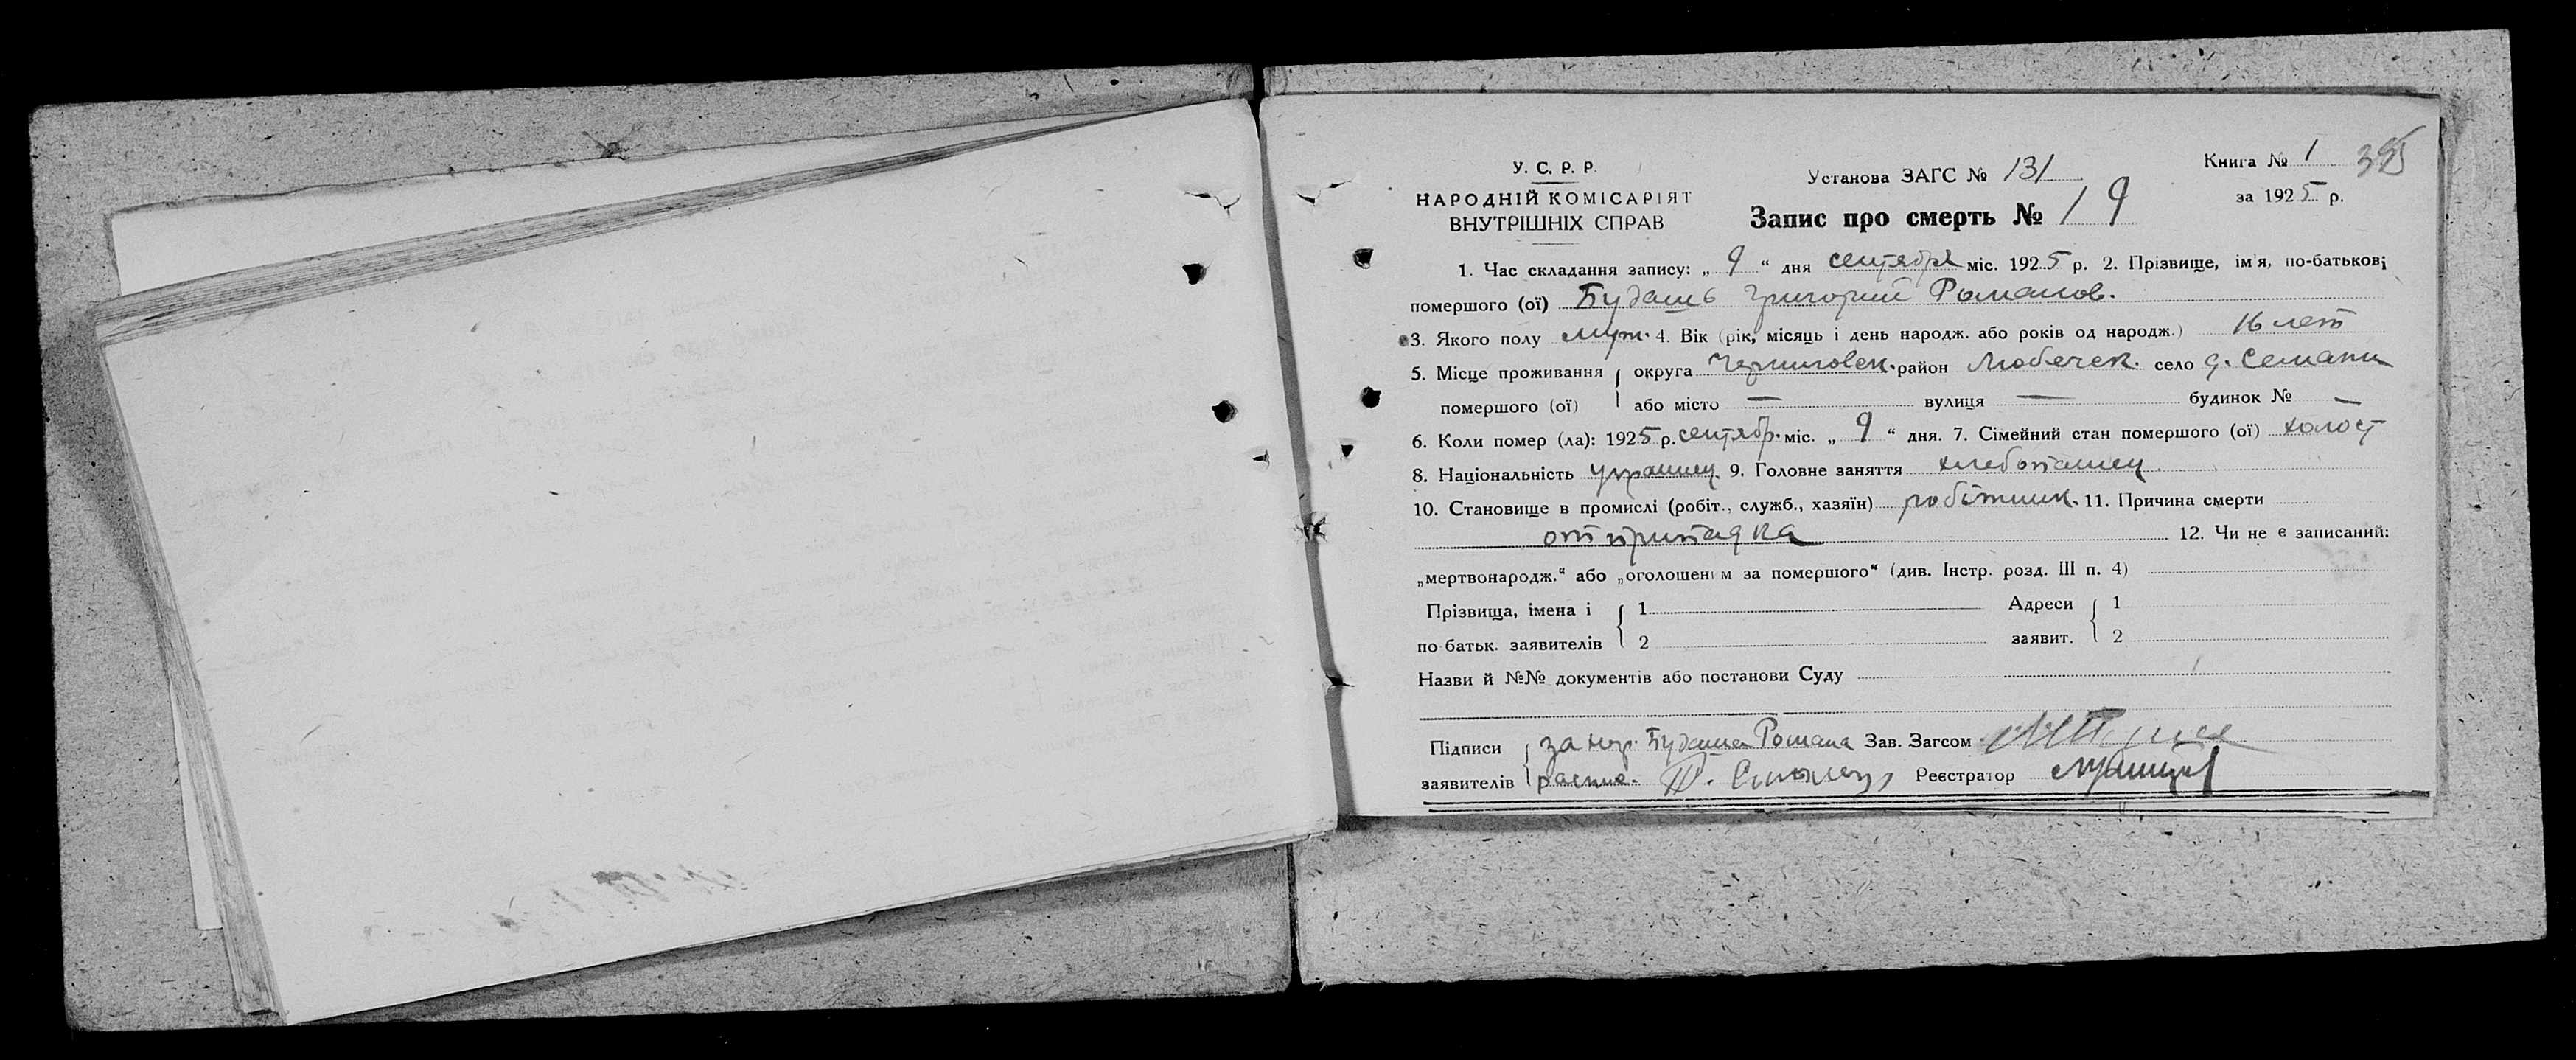 У. С. Р. Р.
НАРОДНІЙ КОМІСАРІЯТ
ВНУТРІШНІХ СПРАВ
Установа ЗАГС № 131
Запис про смерть № 19
Книга № 1
за 1925 р.
1. Час складання запису: „ 9 “ дня сентября міс. 1925 р. 2. Прізвище, ім'я, по-батькові
помершого (ої) Будаш Григорий Романов.
3. Якого полу муж. 4. Вік (рік, місяць і день народж. або років од народж.) 16 лет
5. Місце проживання { округа Черниговск. район Любечск. село д. Семаки
помершого (ої) або місто — вулиця — будинок № —
6. Коли помер (ла): 1925 р. сентябр. міс. „ 9 “ дня. 7. Сімейний стан помершого (ої) холост
8. Національність украинец 9. Головне заняття хлебопашец
10. Становище в промислі (робіт., служб., хазяїн) робітник. 11. Причина смерти
от припадка 12. Чи не є записаний:
„мертвонародж.“ або „оголошеним за помершого“ (див. Інстр. розд. III п. 4)
Прізвища, імена і { 1 Адреси { 1
по батьк. заявителів 2 заявит. 2
Назви й №№ документів або постанови Суду
Підписи { за нер. Будаша Романа Зав. Загсом
заявителів распис. Реєстратор